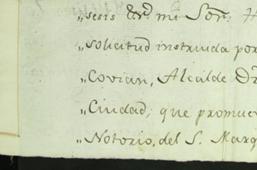 „seis mi Sor.
„solicitud instruida por
„Covian, Alcalde
„Ciudad; que promue
„Notorio, del S. Marq